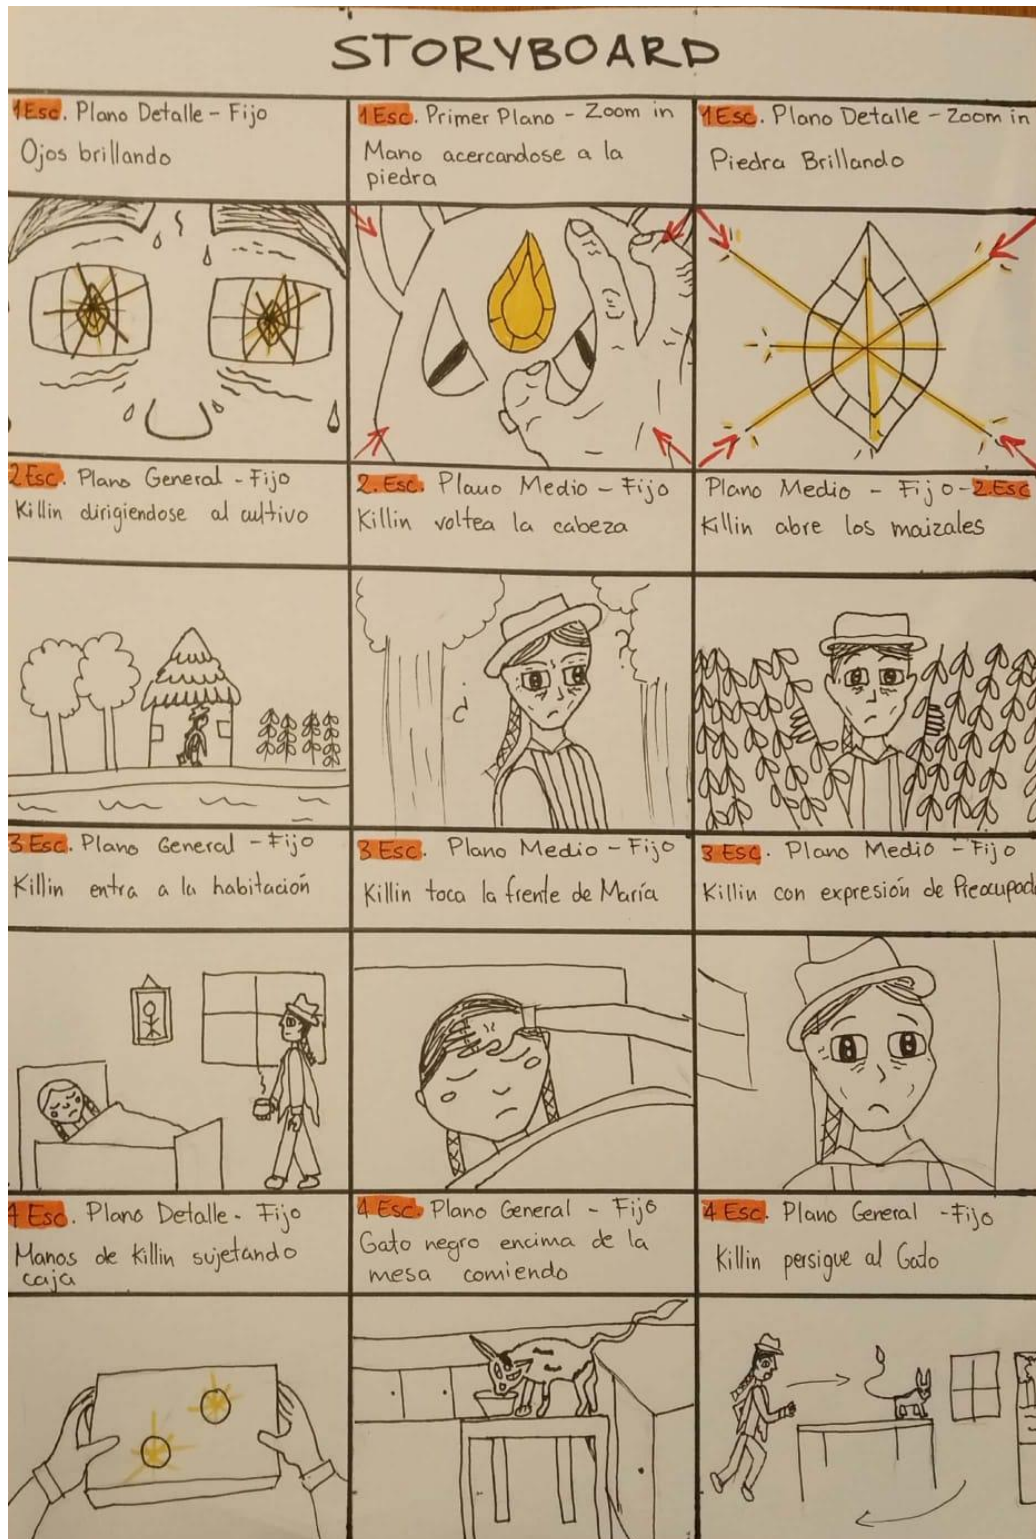 STORYBOARD
1Esc. Plano Detalle - Fijo
Ojos brillando
1Esc. Primer Plano - Zoom in
Mano acercandose a la
piedra
1Esc. Plano Detalle - Zoom in
Piedra Brillando
2Esc. Plano General - Fijo
Killin dirigiendose al cultivo
2.Esc. Plano Medio - Fijo
Killin voltea la cabeza
Plano Medio - Fijo - 2.Esc
Killin abre los maizales
¿ ?
3Esc. Plano General - Fijo
Killin entra a la habitación
3Esc. Plano Medio - Fijo
Killin toca la frente de María
3Esc. Plano Medio - Fijo
Killin con expresión de Preocupad
4Esc. Plano Detalle - Fijo
Manos de Killin sujetando
caja
4Esc. Plano General - Fijo
Gato negro encima de la
mesa comiendo
4Esc. Plano General - Fijo
Killin persigue al Gato